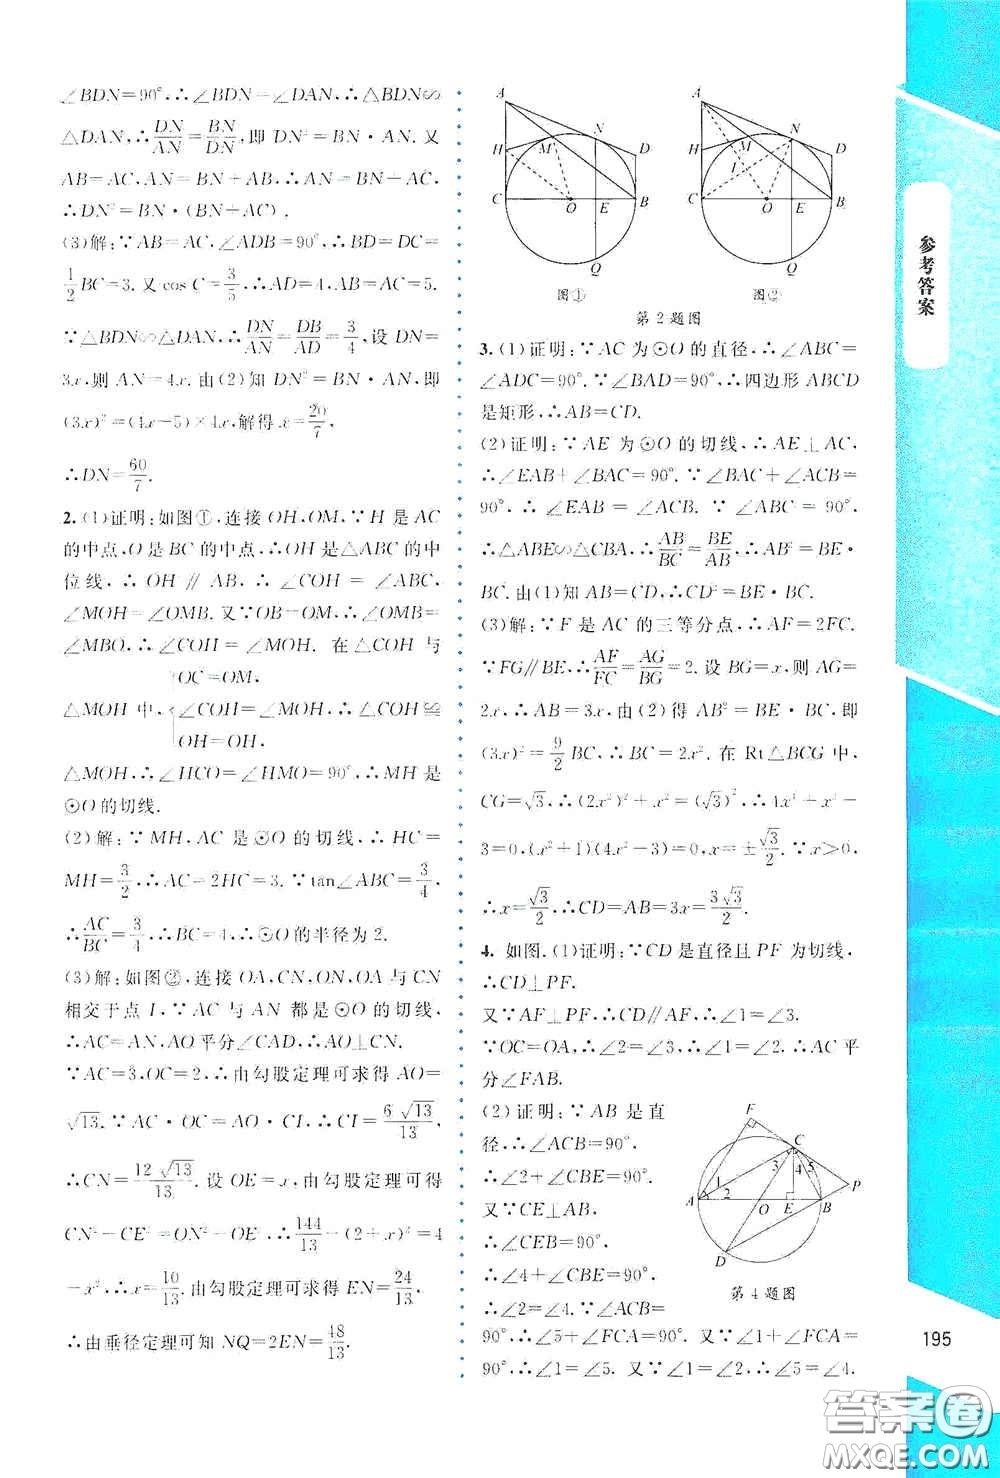 ∠BDN=90°,∴∠BDN=∠DAN,∴△BDN∽
△DAN,∴DN/AN=BN/DN,即 DN²=BN·AN. 又
AB=AC,AN=BN+AB,∴AN=BN+AC,
∴DN²=BN·(BN+AC).
(3)解:∵AB=AC,∠ADB=90°,∴BD=DC=
1/2 BC=3. 又 cos C=3/5,∴AD=4,∴AC=5.
∵△BDN∽△DAN,∴DN/AN=DB/AD=3/4,设 DN=
3x,则 AN=4x. 由(2)知 DN²=BN·AN,即
(3x)²=(4x-5)×4x,解得 x=20/7,
∴DN=60/7.
2. (1)证明:如图①,连接 OH,OM,∵H 是 AC
的中点,O 是 BC 的中点,∴OH 是△ABC 的中
位线,∴OH∥AB,∴∠COH=∠ABC,
∠MOH=∠OMB. 又∵OB=OM,∴∠OMB=
∠MBO,∴∠COH=∠MOH. 在△COH 与
OC=OM,
△MOH 中,∠COH=∠MOH,∴△COH≌
OH=OH,
△MOH,∴∠HCO=∠HMO=90°,∴MH 是
⊙O 的切线.
(2)解:∵MH,AC 是⊙O 的切线,∴HC=
MH=3/2,∴AC=2HC=3. ∵tan∠ABC=3/4,
∴AC/BC=3/4,∴BC=4,∴⊙O 的半径为 2.
(3)解:如图②,连接 OA,CN,ON,OA 与 CN
相交于点 I,∵AC 与 AN 都是⊙O 的切线,
∴AC=AN,AO 平分∠CAD,∴AO⊥CN.
∵AC=3,OC=2,∴由勾股定理可求得 AO=
√13. ∵AC·OC=AO·CI,∴CI=6√13/13,
∴CN=12√13/13. 设 OE=x,由勾股定理可得
CN²-CE²=ON²-OE²,∴144/13-(2+x)²=4
-x²,∴x=10/13. 由勾股定理可求得 EN=24/13,
∴由垂径定理可知 NQ=2EN=48/13.
A N M H D C O E B Q
A N M H D I C O E B Q
图① 图②
第 2 题图
3. (1)证明:∵AC 为⊙O 的直径,∴∠ABC=
∠ADC=90°. ∵∠BAD=90°,∴四边形 ABCD
是矩形,∴AB=CD.
(2)证明:∵AE 为⊙O 的切线,∴AE⊥AC,
∴∠EAB+∠BAC=90°. ∵∠BAC+∠ACB=
90°,∴∠EAB=∠ACB. ∵∠ABC=90°,
∴△ABE∽△CBA,∴AB/BC=BE/AB,∴AB²=BE·
BC. 由(1)知 AB=CD,∴CD²=BE·BC.
(3)解:∵F 是 AC 的三等分点,∴AF=2FC.
∵FG∥BE,∴AF/FC=AG/BG=2. 设 BG=x,则 AG=
2x,∴AB=3x,由(2)得 AB²=BE·BC,即
(3x)²=9/2 BC,∴BC=2x². 在 Rt△BCG 中,
CG=√3,∴(2x²)²+x²=(√3)²,∴4x⁴+x²-
3=0,(x²+1)(4x²-3)=0,x=±√3/2. ∵x>0,
∴x=√3/2,∴CD=AB=3x=3√3/2.
4. 如图. (1)证明:∵CD 是直径且 PF 为切线,
∴CD⊥PF.
又∵AF⊥PF,∴CD∥AF,∴∠1=∠3.
∵OC=OA,∴∠2=∠3,∴∠1=∠2,∴AC 平
分∠FAB.
(2)证明:∵AB 是直
径,∴∠ACB=90°,
∴∠2+∠CBE=90°.
又∵CE⊥AB,
∴∠CEB=90°,
∴∠4+∠CBE=90°,
∴∠2=∠4. ∵∠ACB=
90°,∴∠5+∠FCA=90°. 又∵∠1+∠FCA=
90°,∴∠1=∠5. 又∵∠1=∠2,∴∠5=∠4.
F C 3 4 5 1 2 P A O E B D
第 4 题图
参考答案
195
答案圈
MXQE.COM